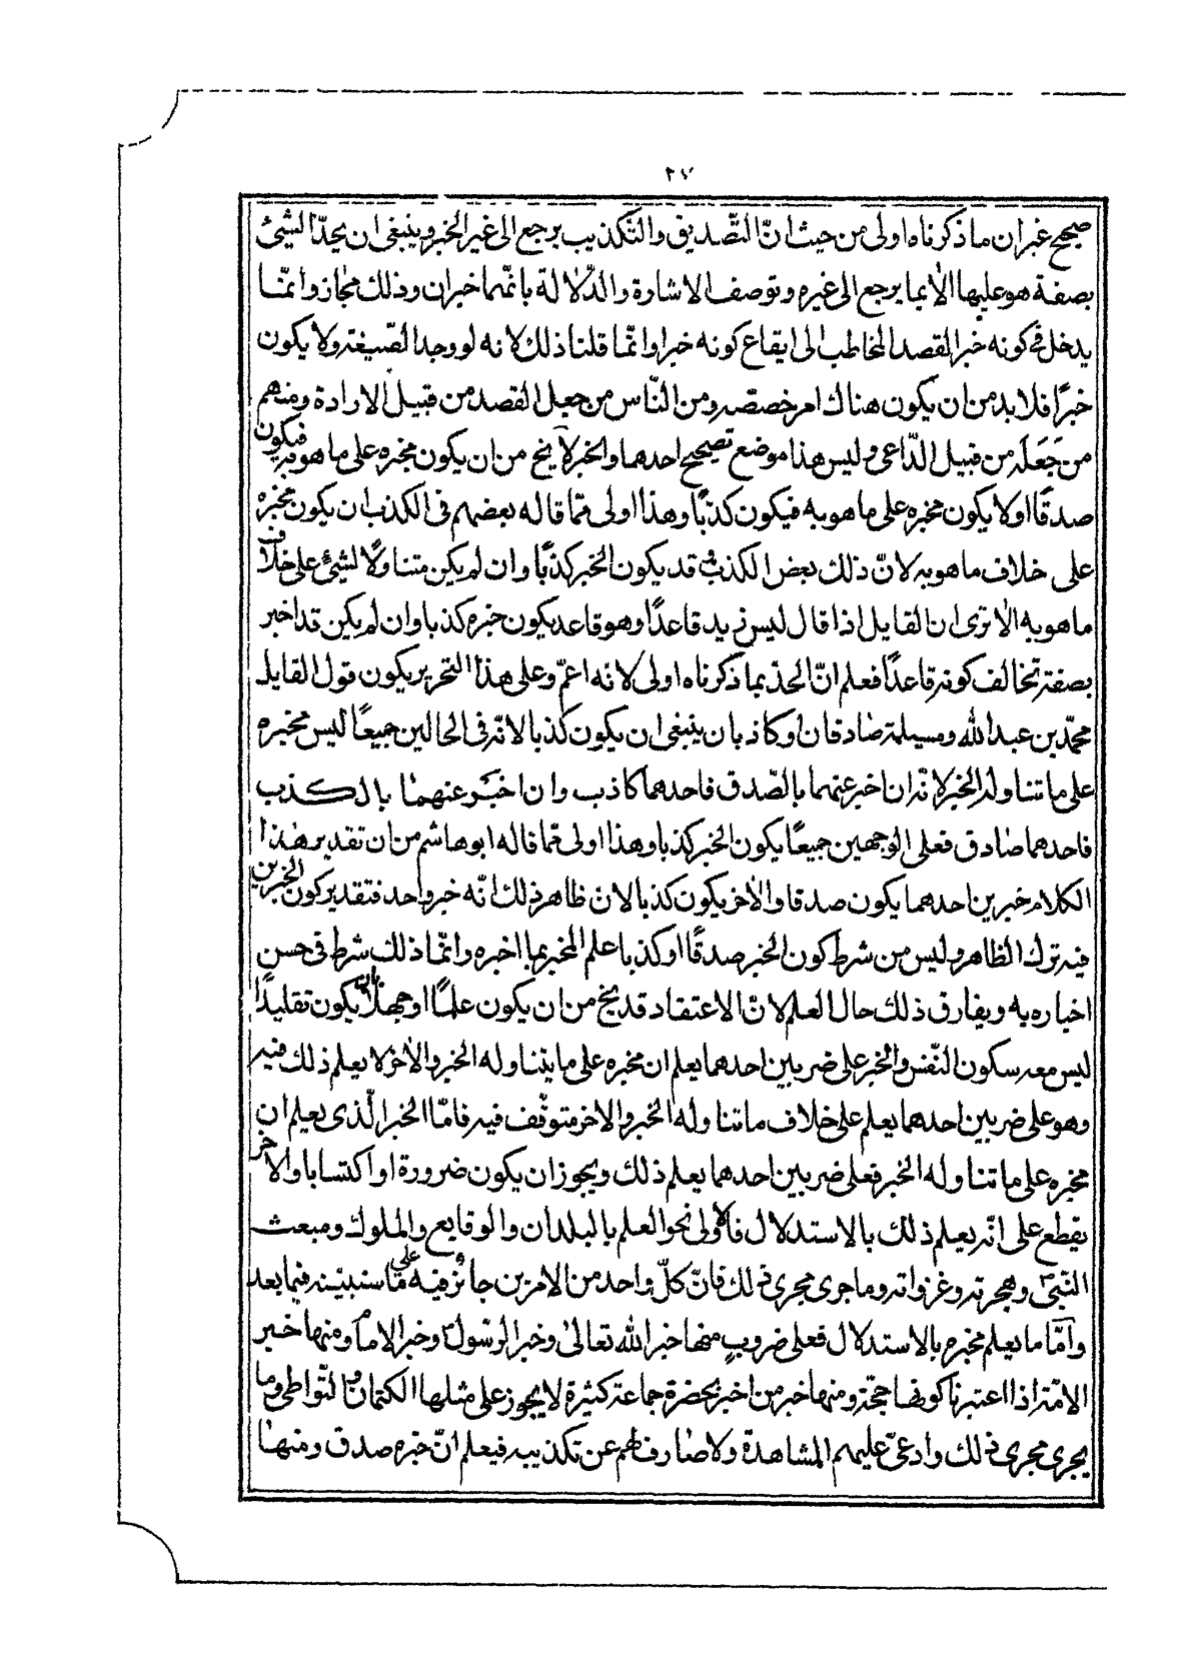 ٢٧
صحيح غير ان ما ذكرناه اولى من حيث انّ التّصديق والتّكذيب يرجع الى غير الخبر وينبغى ان يحدّ الشيئ
بصفة هو عليها الّا بما يرجع الى غيره وتوصف الاشارة والدّلالة بانّهما خبران وذلك مجاز وانّما
يدخل فى كونه خبرا لقصد المخاطب الى ايقاع كونه خبرا وانّما قلنا ذلك لانه لو وجد الصّيغة ولا يكون
خبرًا فلا بد من ان يكون هناك امر خصّصه ومن النّاس من جعل القصد من قبيل الارادة ومنهم
من جَعَلَه من قبيل الدّاعى وليس هذا موضع تصحيح احدهما والخبر لا يخ من ان يكون مخبره على ما هو به فيكون
صدقًا او لا يكون مخبره على ما هو به فيكون كذبًا وهذا اولى ممّا قاله بعضهم فى الكذب ان يكون مخبره
على خلاف ما هو به لانّ ذلك بعض الكذب وقد يكون الخبر كذبًا وان لم يكن متناولًا لشيئ على خلاف
ما هو به الا ترى ان القايل اذا قال ليس زيد قاعدًا وهو قاعد يكون خبره كذبا وان لم يكن قد اخبر
بصفة تخالف كونه قاعدًا فعلم انّ الحدّ بما ذكرناه اولى لانه اعمّ وعلى هذا التحرير يكون قول القايل
محمّد بن عبد الله ومسيلمة صادقان او كاذبان ينبغى ان يكون كذبا لانّه فى الحالين جميعًا ليس مخبره
على ما تناوله الخبر لانّه ان اخبر عنهما بالصّدق فاحدهما كاذب وان اخبر عنهما بالكذب
فاحدهما صادق فعلى الوجهين جميعًا يكون الخبر كذبا وهذا اولى ممّا قاله ابو هاشم من ان تقدير هذا
الكلام خبرين احدهما يكون صدقا والآخر يكون كذبا لانّ ظاهر ذلك انّه خبر واحد فتقدير كون الخبرين
فيه ترك الظاهر وليس من شرط كون الخبر صدقًا او كذبا علم المخبر بما اخبره وانّما ذلك شرط فى حسن
اخباره به ويفارق ذلك حال العلم لانّ الاعتقاد قد يخ من ان يكون علمًا او جهلًا بان يكون تقليدًا
ليس معه سكون النّفس والخبر على ضربين احدهما يعلم ان مخبره على ما يتناوله الخبر والآخر لا يعلم ذلك فيه
وهو على ضربين احدهما يعلم على خلاف ما تناوله الخبر والآخر متوقّف فيه فامّا الخبر الّذى يعلم ان
مخبره على ما تناوله الخبر فعلى ضربين احدهما يعلم ذلك ويجوز ان يكون ضرورة او اكتسابا والآخر
يقطع على انّه يعلم ذلك بالاستدلال فالاولى نحو العلم بالبلدان والوقايع والملوك ومبعث
النّبىّ وهجرته وغزواته وما جرى مجرى ذلك فانّ كلّ واحد من الامرين جائز فيه على ما سنبيّنه فيما بعد
وامّا ما يعلم مخبره بالاستدلال فعلى ضروبٍ منها خبر الله تعالى وخبر الرسول وخبر الامام ومنها خبر
الامّة اذا اعتبرنا كونها حجّة ومنها خبر من اخبر بحضرة جماعة كثيرة لا يجوز على مثلها الكتمان والتّواطى وما
يجرى مجرى ذلك وادعىّ عليهم المشاهدة ولا صارف لهم عن تكذيبه فيعلم انّ خبره صدق ومنها